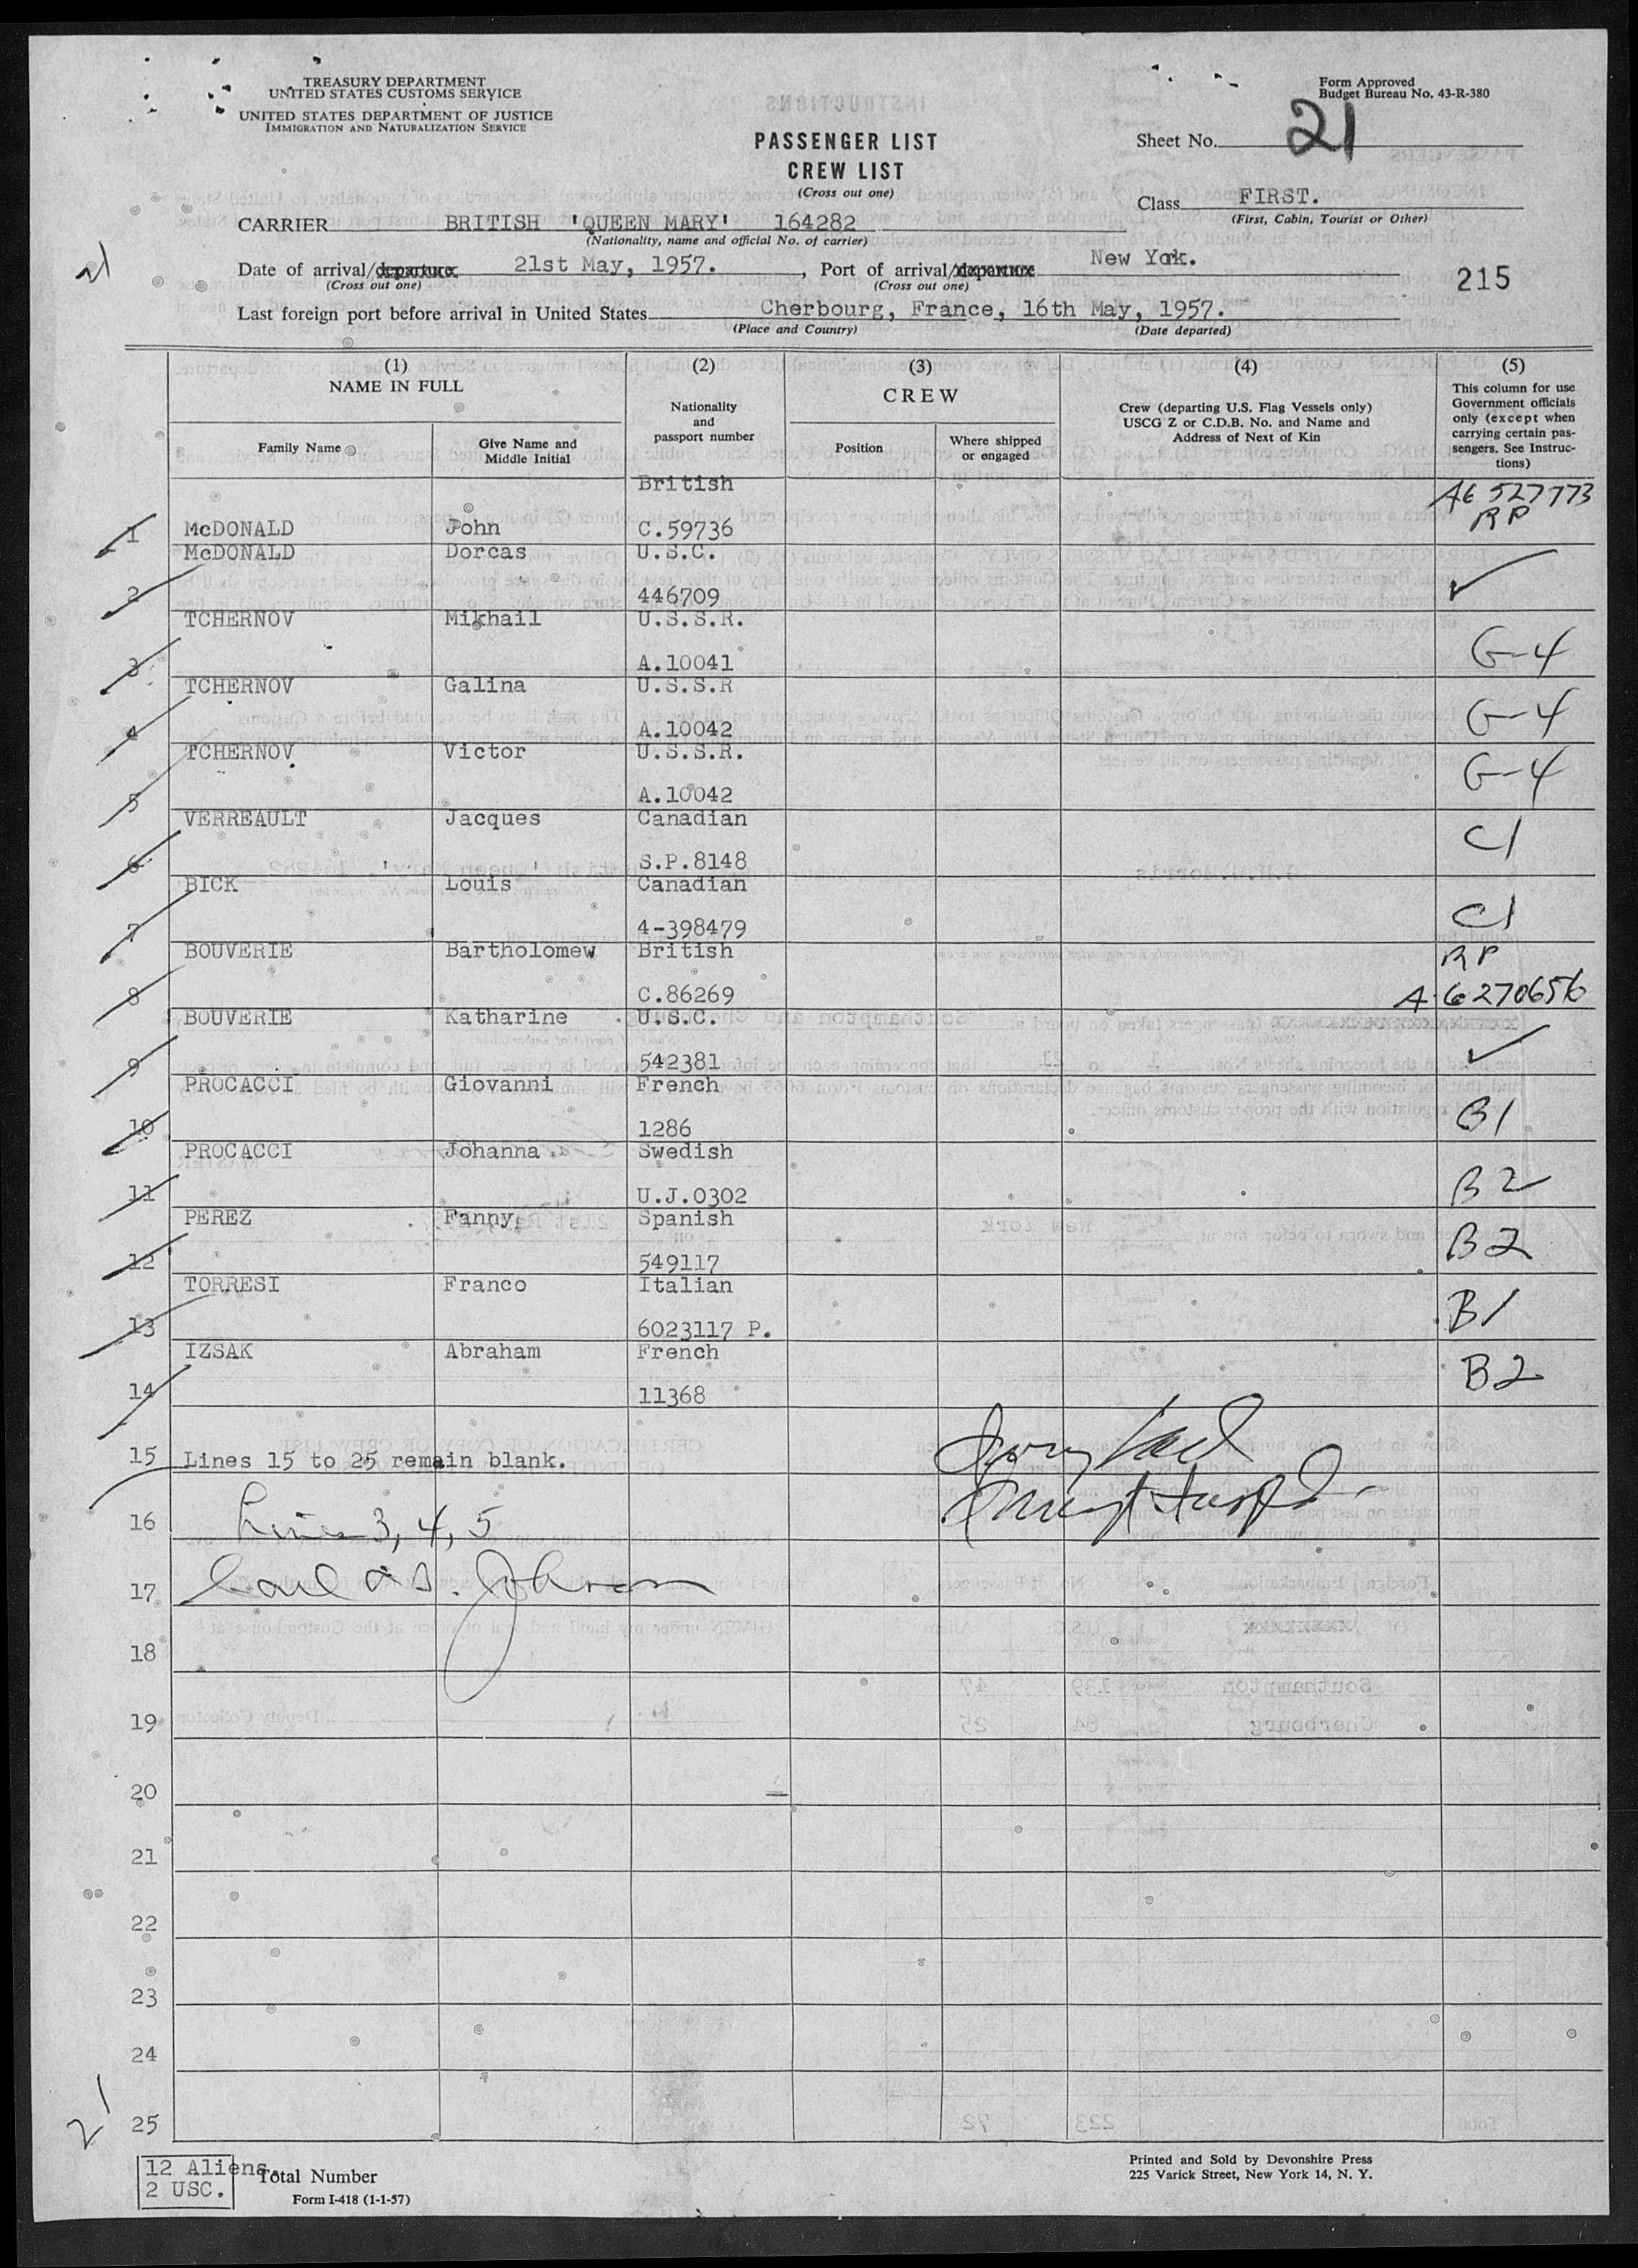 TREASURY DEPARTMENT
UNITED STATES CUSTOMS SERVICE
UNITED STATES DEPARTMENT OF JUSTICE
IMMIGRATION AND NATURALIZATION SERVICE
Form Approved
Budget Bureau No. 43-R-380
PASSENGER LIST
CREW LIST
(Cross out one)
Sheet No. 21
Class FIRST.
(First, Cabin, Tourist or Other)
CARRIER BRITISH 'QUEEN MARY' 164282
(Nationality, name and official No. of carrier)
21
Date of arrival/departure 21st May, 1957. , Port of arrival/departure New York.
(Cross out one) (Cross out one)
215
Last foreign port before arrival in United States Cherbourg, France, 16th May, 1957.
(Place and Country) (Date departed)
(1)
NAME IN FULL
Family Name
Give Name and Middle Initial
(2)
Nationality and passport number
(3)
CREW
Position
Where shipped or engaged
(4)
Crew (departing U.S. Flag Vessels only)
USCG Z or C.D.B. No. and Name and
Address of Next of Kin
(5)
This column for use
Government officials
only (except when
carrying certain pas-
sengers. See Instruc-
tions)
British A6 527773
1 McDONALD John C.59736 RP
McDONALD Dorcas U.S.C.
2 446709 ✓
TCHERNOV Mikhail U.S.S.R.
3 A.10041 G-4
TCHERNOV Galina U.S.S.R
4 A.10042 G-4
TCHERNOV Victor U.S.S.R.
5 A.10042 G-4
VERREAULT Jacques Canadian
6 S.P.8148 C1
BICK Louis Canadian
7 4-398479 C1
BOUVERIE Bartholomew British RP
8 C.86269 A 6 270656
BOUVERIE Katharine U.S.C.
9 542381 ✓
PROCACCI Giovanni French
10 1286 B1
PROCACCI Johanna Swedish
11 U.J.0302 B2
PEREZ Fanny Spanish
12 549117 B2
TORRESI Franco Italian
13 6023117 P. B1
IZSAK Abraham French
14 11368 B2
15 Lines 15 to 25 remain blank.
16 Lines 3, 4, 5
17 Johnson
18
19
20
21
22
23
24
25
21
12 Aliens.
2 USC.
Total Number
Form I-418 (1-1-57)
Printed and Sold by Devonshire Press
225 Varick Street, New York 14, N. Y.